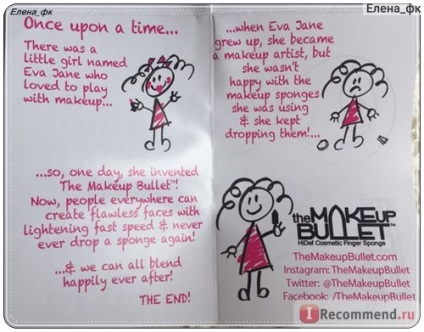 Елена_фк
Елена_фк
Once upon a time...
There was a
little girl named
Eva Jane who
loved to play
with makeup...
...when Eva Jane
grew up, she became
a makeup artist, but
she wasn't
happy with the
makeup sponges
she was using
& she kept
dropping them!...
...so, one day, she invented
The Makeup Bullet™!
Now, people everywhere can
create flawless faces with
lightening fast speed & never
ever drop a sponge again!
...& we can all blend
happily ever after!
THE END!
the MAKEUP
BULLET™
HiDef Cosmetic Finger Sponge
TheMakeupBullet.com
Instagram: TheMakeupBullet
Twitter: @TheMakeupBullet
Facebook: /TheMakeupBullet
iRecommend.ru